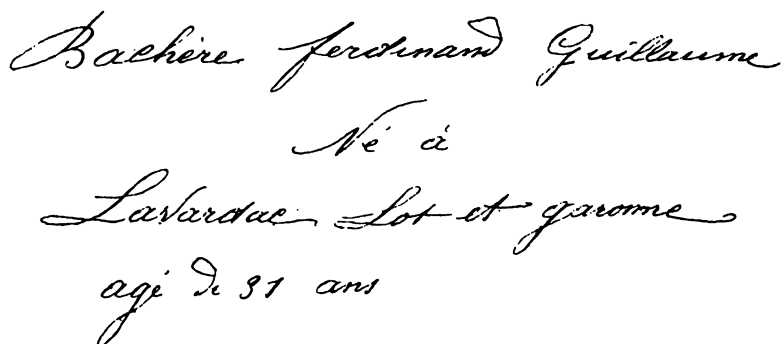 Bachère ferdinand Guillaume
Né à
Lavardac Lot et garonne
agé de 31 ans